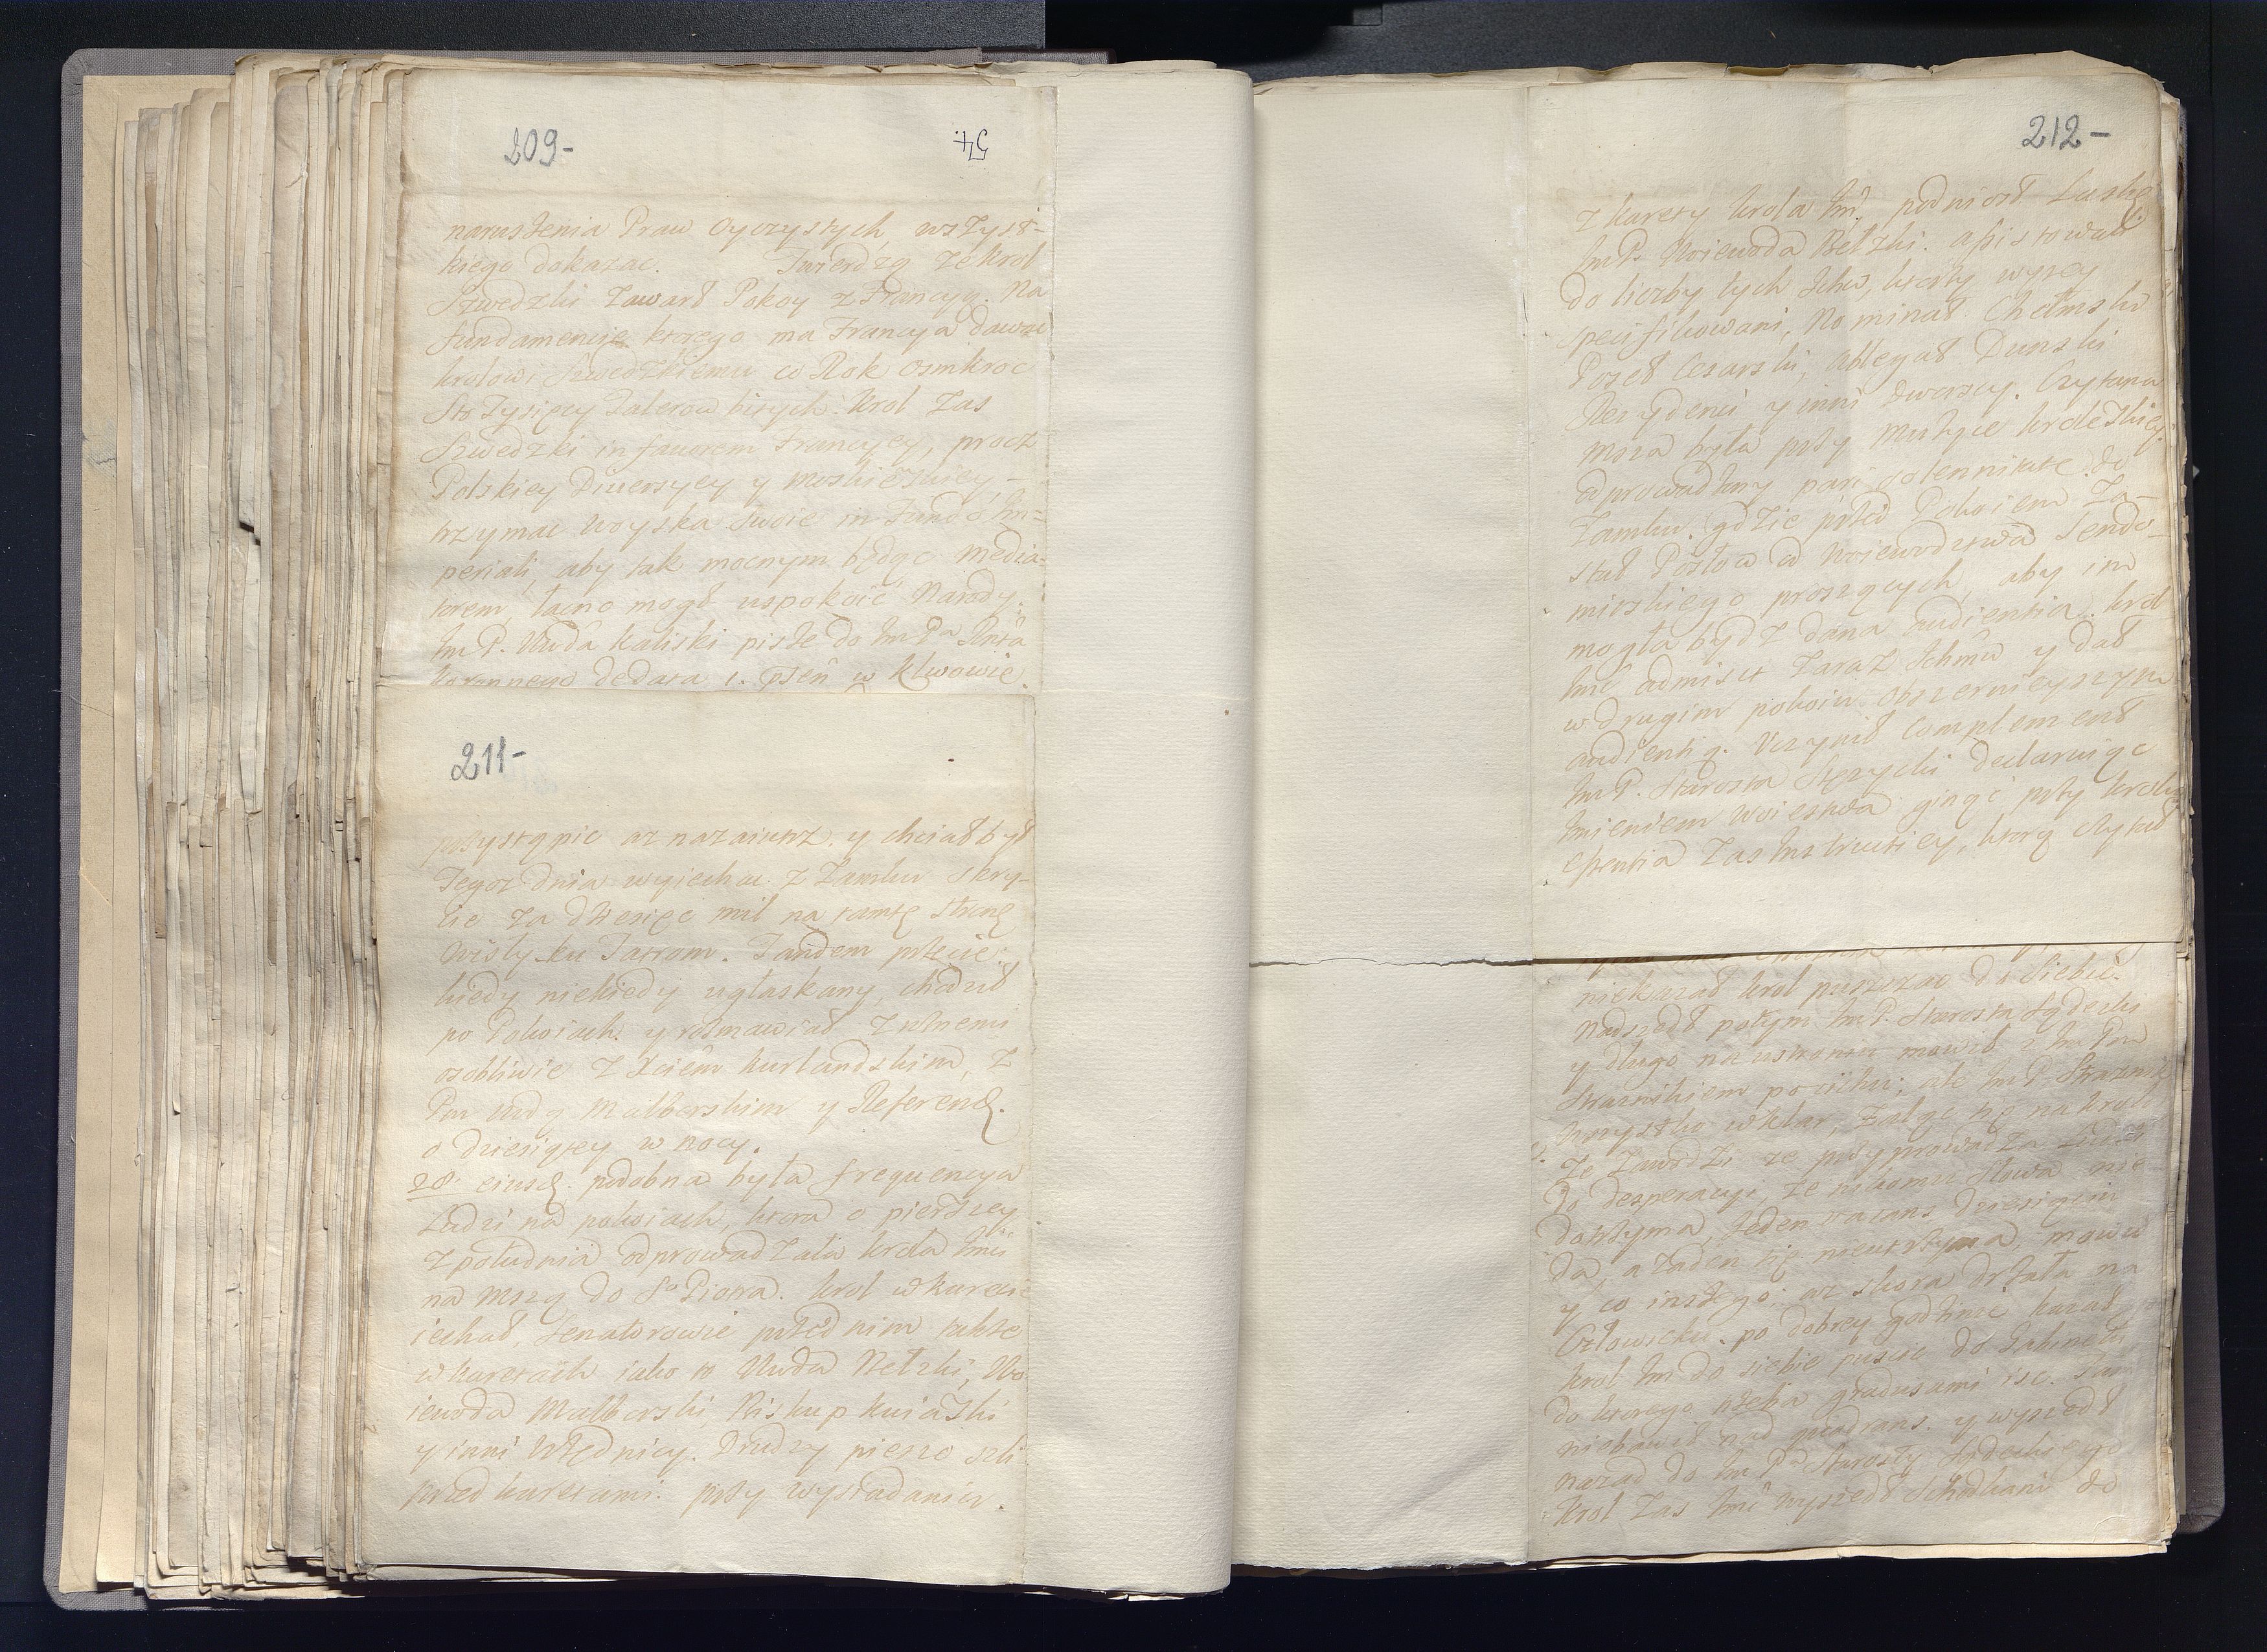 209-
54.
naruszenia Praw Oyczystych, wszyst-
kiego dokazac. Twierdzą ze krol
Szwedzki Zawarł Pokoy z Francyą. Na
fundamencie ktorego ma Francya dawac
krolowi Szwedzkiemu co Rok osmkroc
Sto Tysięcy Talerow bitych: krol Zas
Szwedzki in favorem Francyey, procz
Polskiey Diversyey y Moskiewskiey,
trzymac woyska swoie in fundo Im-
periali, aby tak mocnym będąc media-
torem, łacno mogł uspokoić Narody.
Im P. Kaliski pisze do Im Pa
de data 1. w Klwowie.
211-
przystąpic az nazaiutrz. y chciał był
Tegoz dnia wyiechac z Zamku skry-
cie za dziesięc mil na tamtę stronę
Wisly ku Tatrom. Tandem przecie
kiedy niekiedy ugłaskany, chodził
po Pokoiach y rozmawiał z
osobliwie z Xciem Kurlandskim, z
Pm Wdą Malborskim y Referend.
o dziesiątey w nocy.
28. eiusd. podobna była frequencya
Ludzi na pokoiach, ktora o pierwszey
z południa odprowadzała krola Imci
na mszą do So Piotra. krol w karecie
iechał, Senatorowie przed nim także
w karetach iako to Wwda Bełzki, Wo
iewoda Malborski, Biskup Kuiawski
y inni Urzędnicy. Drudzy pieszo szli
przed karetami. przy wysiadaniu
212-
z karety krola Im, podniosł Laskę
Im P. Woiewoda Bełzki. assistował
do liczby tych Ichm, ktorzy wyzey
specifikowani, Nominat Chełmski
Poseł Cesarski, Ablegat Dunski
Rezydenci y inni dworscy. Czytana
msza była przy Muzyce krolewskiey.
odprowadzony pari solennitate do
Zamku. gdzie przed Pokoiem Za-
stał Posłow od Woiewodztwa Sendo-
mirskiego proszących, aby im
mogła bydz dana audientia. krol
Imc admisit zaraz Ichmw y dał
w drugim pokoiu obszernieyszym
audientią. Uczynił Complement
Im P. Starosta Stęzycki declaruiąc
Imieniem Woiewstwa ginąć przy krolu
Essentia zas Instructiey, ktorą czytał
niekazał krol puszczac do Siebie.
Nadszedł potym Im P. Starosta Sądecki
y długo na ustroniu mowił z Im Pm
Straznikiem po cichu; ale Im P. Straznik
wszystko w klar, zaląc się na krola
Ze zawodzi ze przyprowadza Ludzi
do desperacyi, ze nikomu słowa nie
dotrzyma, Jeden vacans dziesięciu
da, a zaden się nieutrzyma, mowił
y co inszego; az skora drzała na
Człowieku. po dobrey godzinie kazał
krol Im do siebie puscic do Gabinetu
do ktorego trzeba gradusami isc.
niebawił nad quadrans. y wyszedł
nazad do Im Pa Starosty Sądeckiego
Krol zas Imc wyszedł Schodkami do